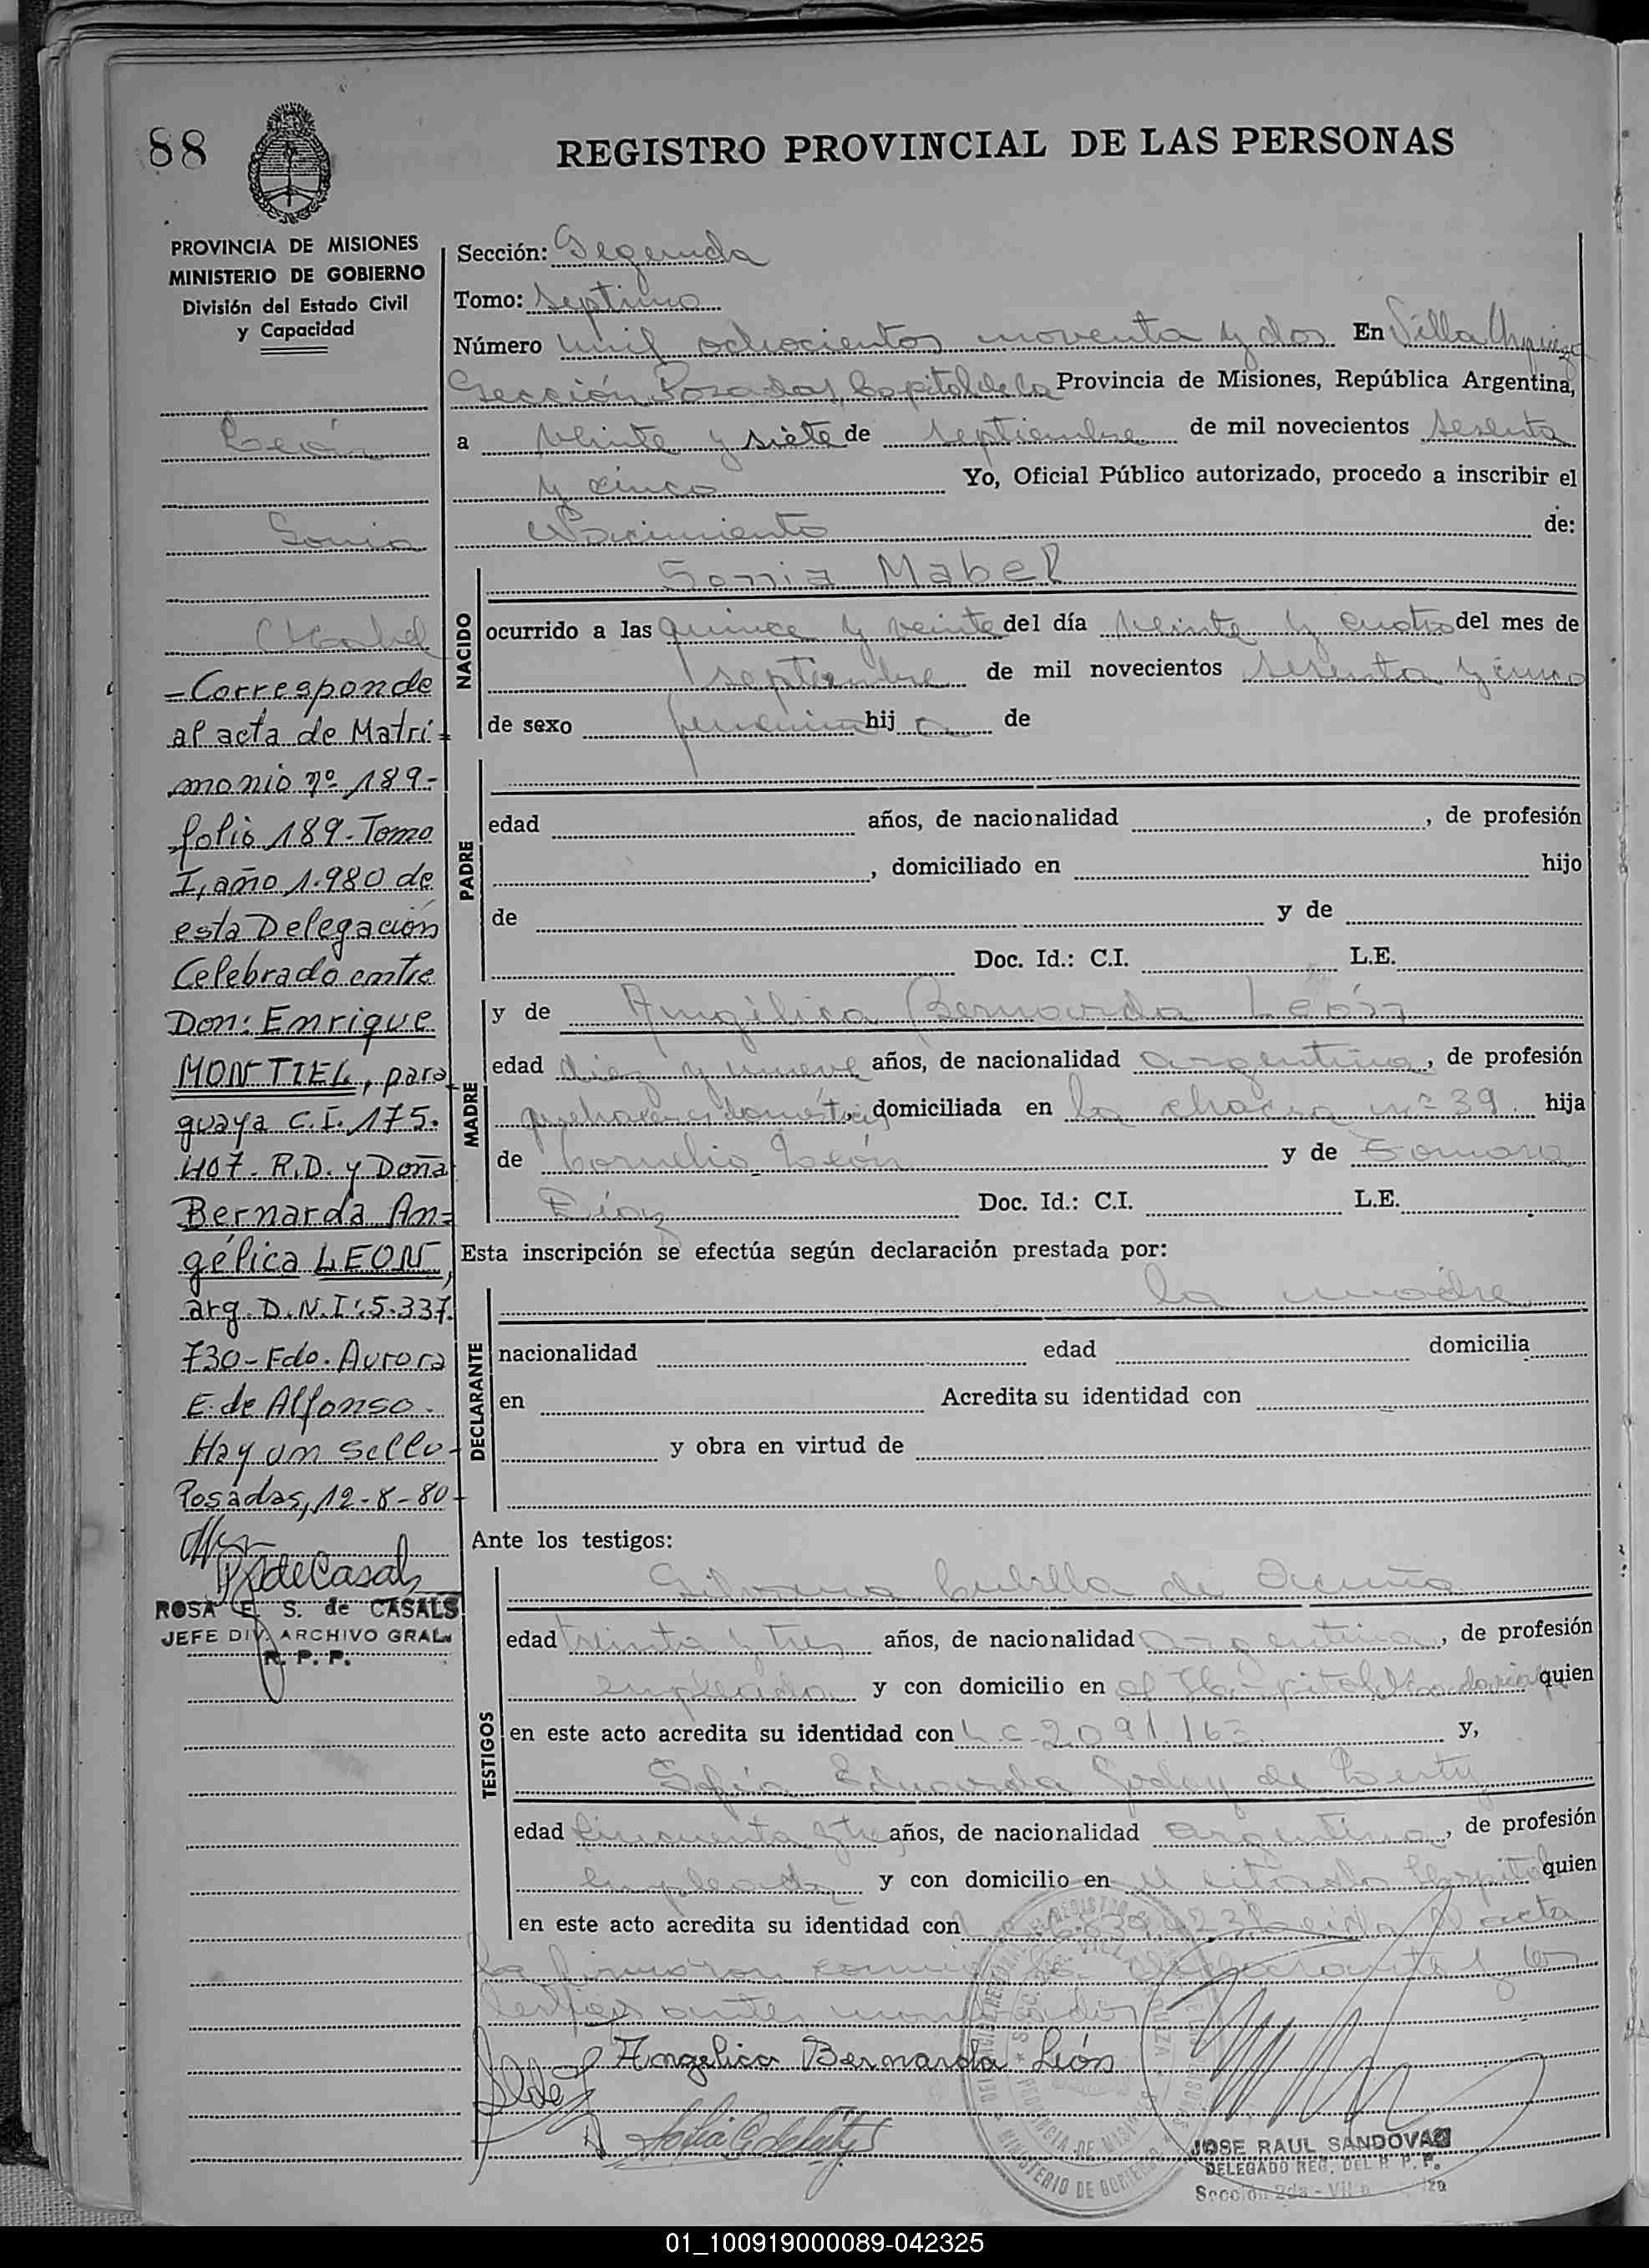 88
REGISTRO PROVINCIAL DE LAS PERSONAS
PROVINCIA DE MISIONES
MINISTERIO DE GOBIERNO
División del Estado Civil
y Capacidad
León
Sonia
Mabel
- Corresponde
al acta de Matri-
monio nº 189-
folio 189- Tomo
I, año 1.980 de
esta Delegación
Celebrado entre
Don: Enrique
MONTIEL, para
guaya C.I. 175.
407- R.D. y Doña
Bernarda An-
gélica LEON,
arg. D.N.I: 5.337.
730- Fdo. Aurora
E. de Alfonso.
Hay un sello-
Posadas, 12-8-80-
ROSA E. S. de CASALS
JEFE DIV. ARCHIVO GRAL.
R. P. P.
Sección: Segunda
Tomo: septimo
Número mil ochocientos noventa y dos En Villa Urquiza
Sección Posadas, Capital de la Provincia de Misiones, República Argentina,
a veinte y siete de septiembre de mil novecientos sesenta
y cinco Yo, Oficial Público autorizado, procedo a inscribir el
Nacimiento de:
NACIDO
Sonia Mabel
ocurrido a las quince y veinte del día veinte y cuatro del mes de
septiembre de mil novecientos sesenta y cinco
de sexo femenino hij a de
PADRE
edad años, de nacionalidad , de profesión
, domiciliado en hijo
de y de
Doc. Id.: C.I. L.E.
MADRE
y de Angélica Bernarda León
edad diez y nueve años, de nacionalidad argentina, de profesión
quehaceres domésticos, domiciliada en la chacra nº 39 hija
de Cornelio León y de
Doc. Id.: C.I. L.E.
Esta inscripción se efectúa según declaración prestada por:
DECLARANTE
la madre
nacionalidad edad domicilia
en Acredita su identidad con
y obra en virtud de
Ante los testigos:
TESTIGOS
de Acuña
edad treinta y tres años, de nacionalidad argentina, de profesión
empleada y con domicilio en el Hospital quien
en este acto acredita su identidad con L.C. 2.091.162 y,
Eduarda Godoy de
edad cincuenta y años, de nacionalidad argentina, de profesión
empleada y con domicilio en el citado Hospital quien
en este acto acredita su identidad con Leida el acta
la firmaron la declarante y los
testigos antes
Angelica Bernarda León
JOSE RAUL SANDOVAL
DELEGADO REG. DEL R. P. P.
Sección 2da - Villa
01_100919000089-042325